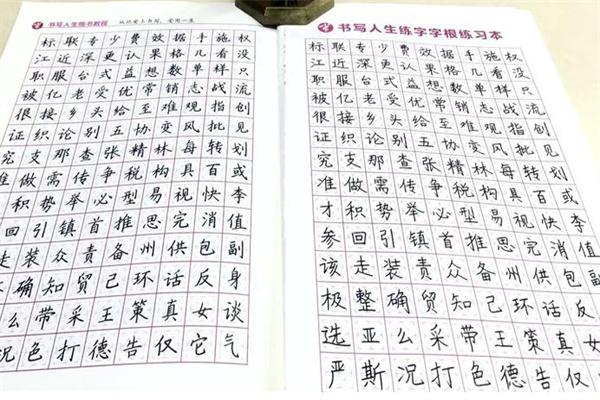 书写人生练字教程 从此爱上书写,受用一生
标联专少费效据手施权
江近深更认果格几看没
职服台式益想数单样只
被亿老受优常销志战流
很接乡头给至难观指创
证织论别五协变风批见
究支那查张精林每转划
准做需传争税构具百或
积势举必型易视快李
回引镇首推思完消值
走装众责备州供包副
确知贸己环话反身
么带采王策真女谈
况色打德告仅它气
书写人生练字字根练习本
标联专少费效据手施权
江近深更认果格几看没
职服台式益想数单样只
被亿老受优常销志战流
很接乡头给至难观指创
证织论别五协变风批见
究支那查张精林每转划
准做需传争税构具百或
才积势举必型易视快李
参回引镇首推思完消值
该走装责众备州供包副
极整确贸知己环话反
选亚么采带王策真女
严斯况打色德告仅